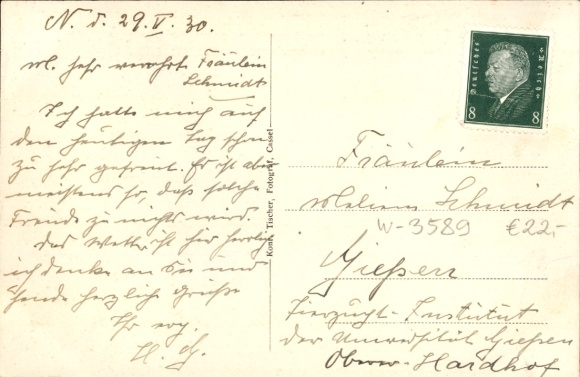 N. d. 29. V. 30.
M. sehr verehrtes Fräulein
Schmidt
Ich hatte mich auf
den heutigen Tag schon
zu sehr gefreut. Es ist aber
meistens so, daß solche
Freude zu nichts wird.
Das Wetter ist hier herrlich
ich denke an Sie und
sende herzliche Grüße
Ihr erg.
H. G.
Konr. Tischer, Fotograf, Cassel
Deutsches Reich
8 8
Fräulein
Schmidt
W-3589 €22,-
Gießen
Tierzucht-Institut
der Universität Gießen
Oberer Hardhof